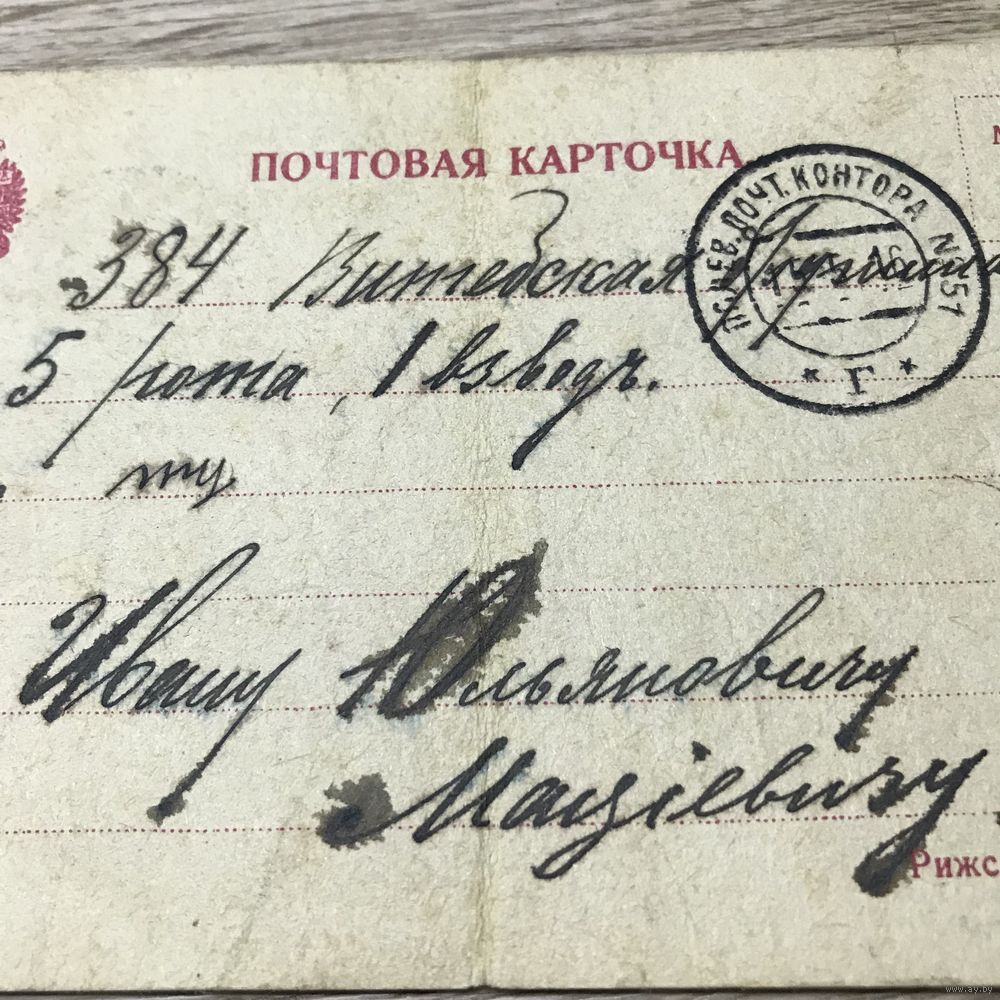 ПОЧТОВАЯ КАРТОЧКА
ПОЧТ. КОНТОРА № 151
* Г *
384 Витебская Дружина
5 рота, 1 взводъ.
Ивану Юльяновичу
Мацiевичу
Рижс
www.ay.by